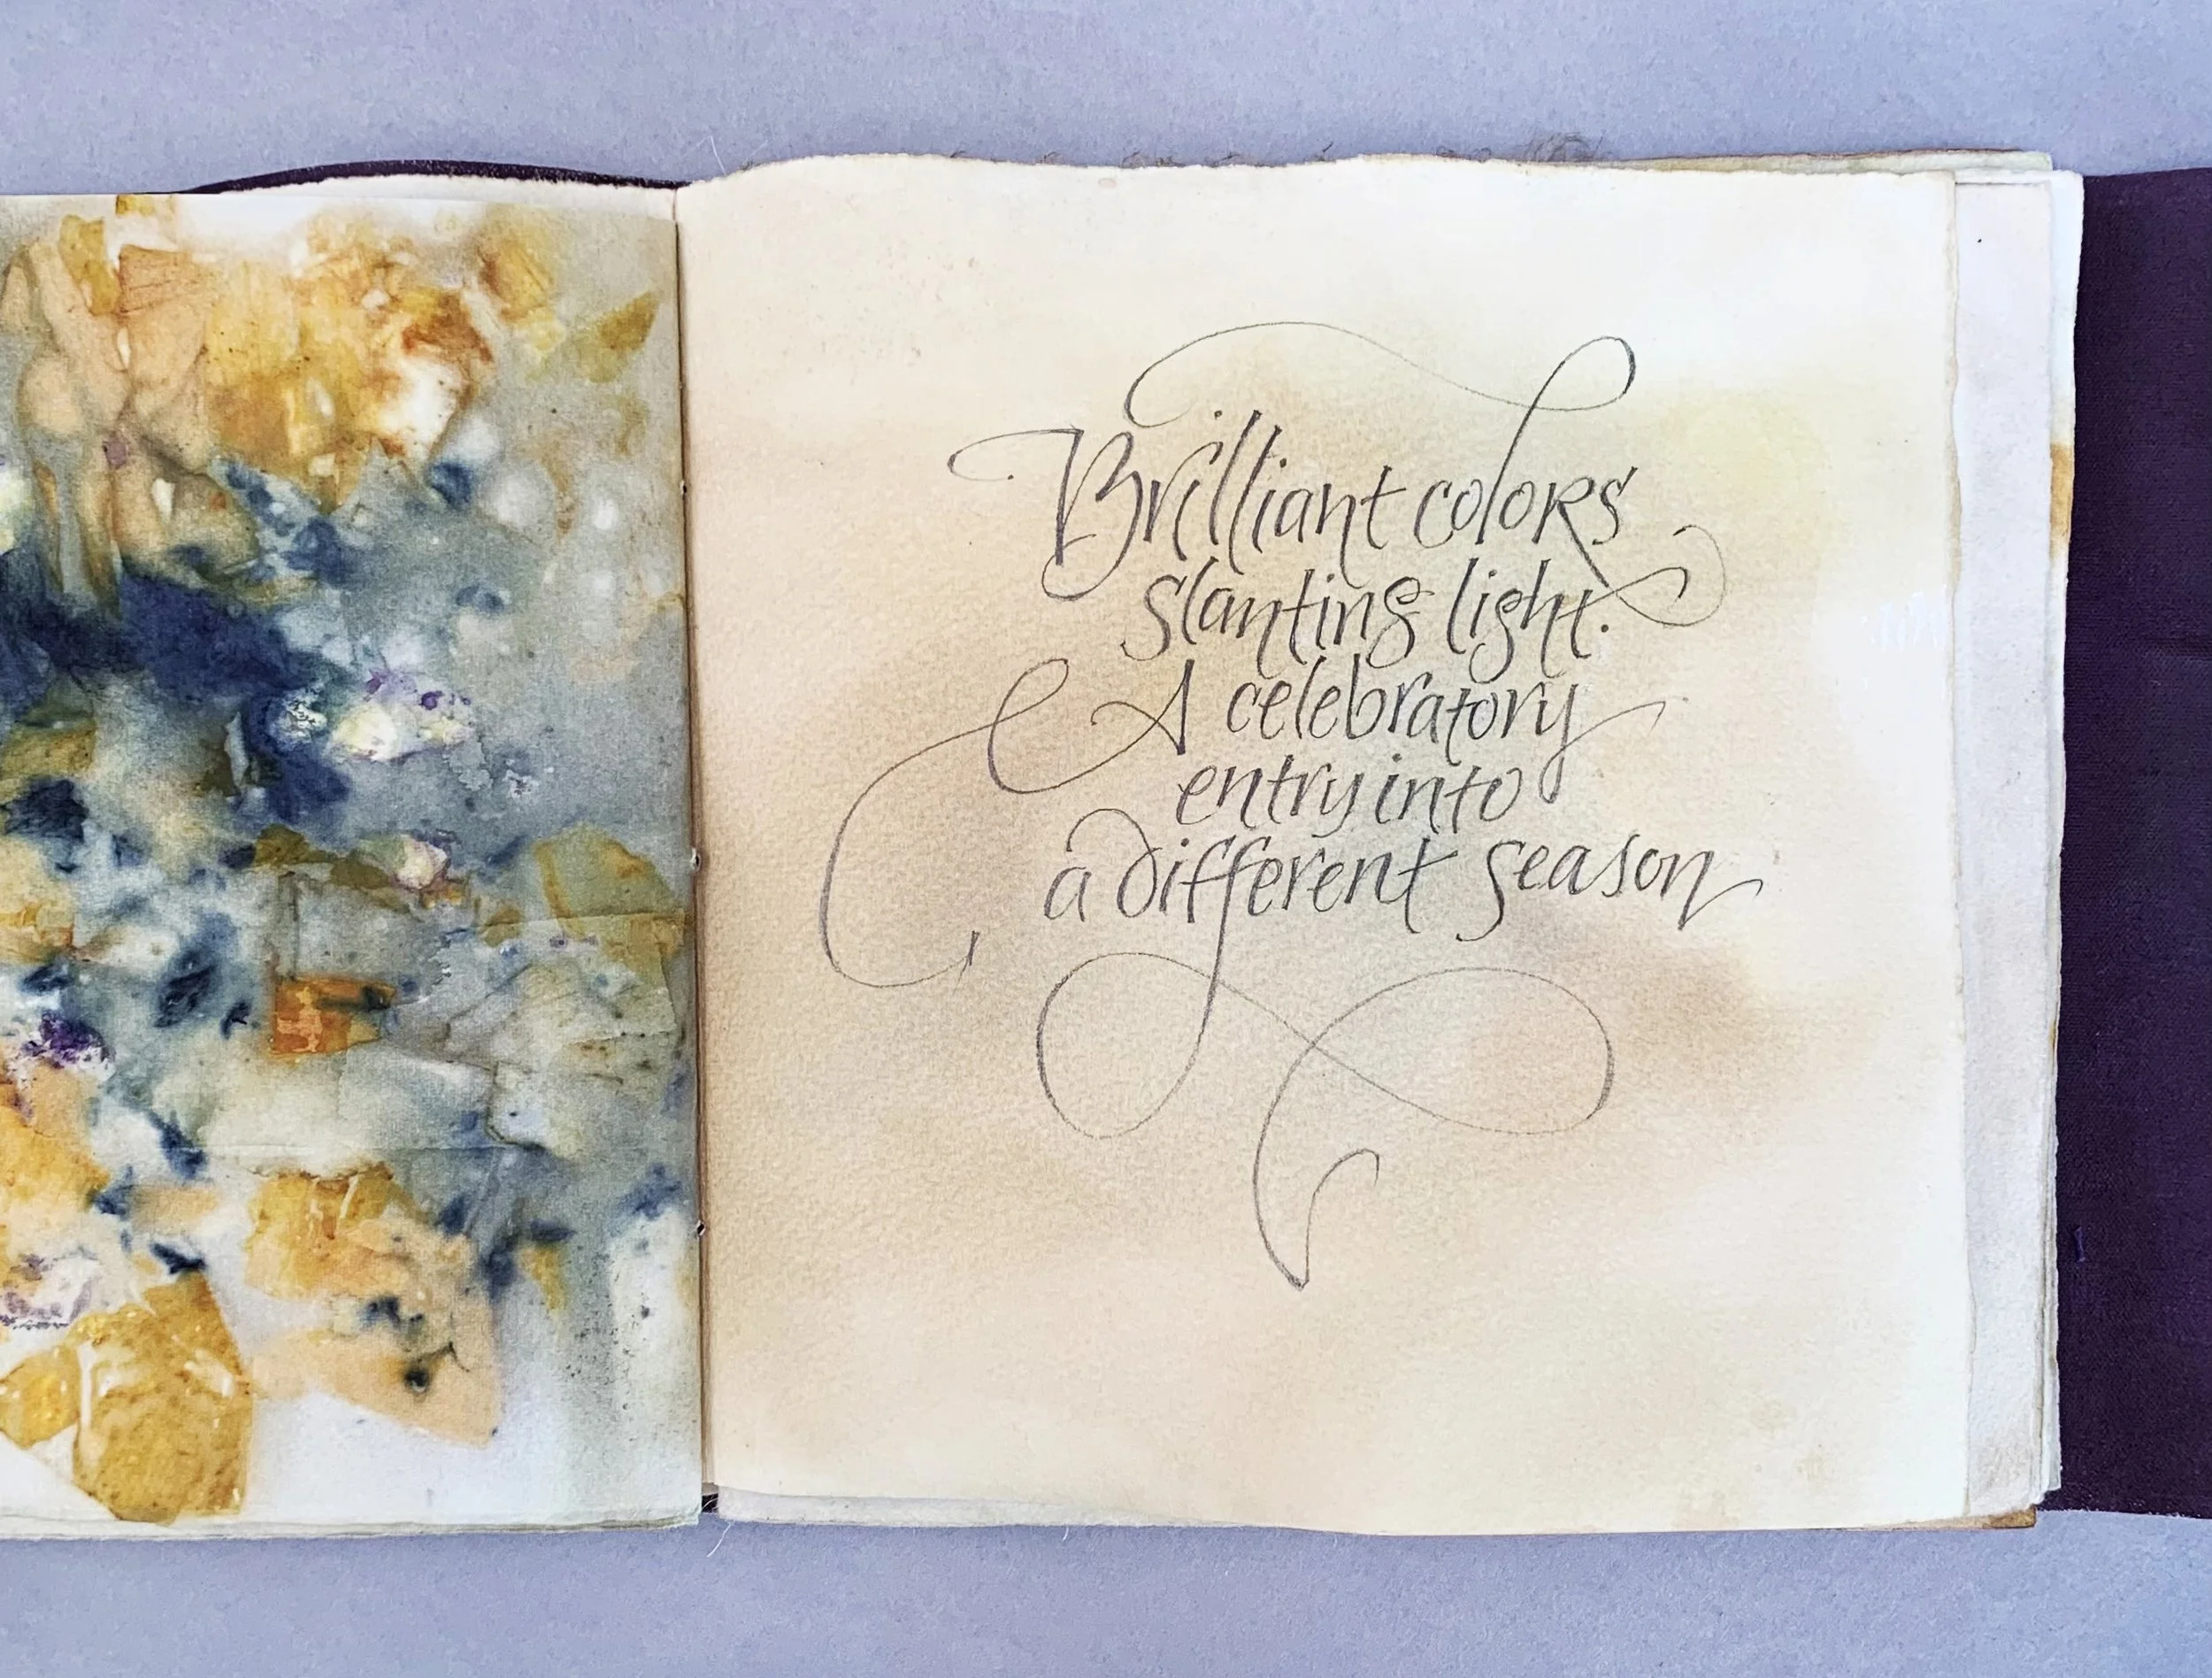 Brilliant colors
slanting light.
A celebratory
entry into
a different season